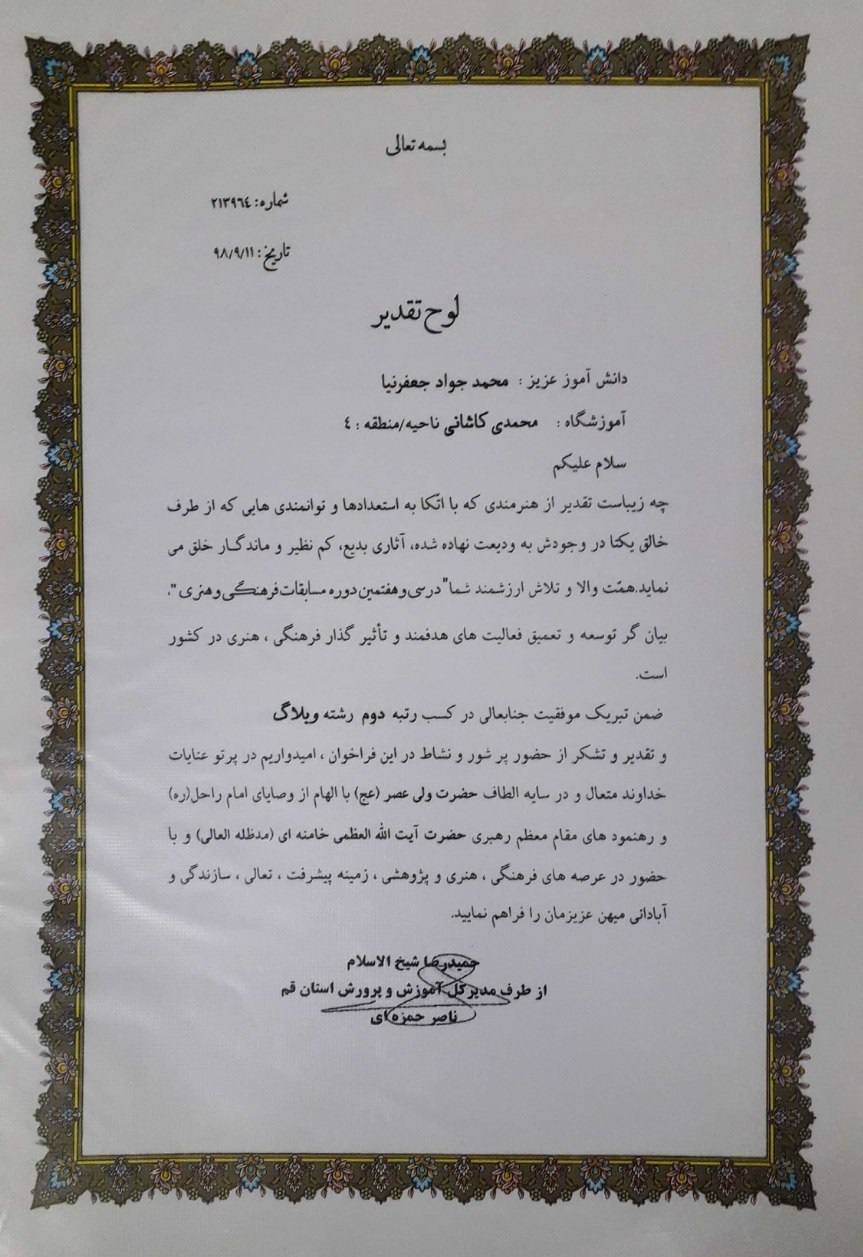 بسمه تعالی
شماره: ۲۱۳۹۶٤
تاریخ: ۹۸/۹/۱۱
لوح تقدیر
دانش آموز عزیز : محمد جواد جعفرنیا
آموزشگاه : محمدی کاشانی ناحیه/منطقه : ٤
سلام علیکم
چه زیباست تقدیر از هنرمندی که با اتّکا به استعدادها و توانمندی هایی که از طرف
خالق یکتا در وجودش به ودیعت نهاده شده، آثاری بدیع، کم نظیر و ماندگار خلق می
نماید.همّت والا و تلاش ارزشمند شما"در سی و هفتمین دوره مسابقات فرهنگی و هنری"،
بیان گر توسعه و تعمیق فعالیت های هدفمند و تأثیر گذار فرهنگی ، هنری در کشور
است.
ضمن تبریک موفقیت جنابعالی در کسب رتبه دوم رشته وبلاگ
و تقدیر و تشکر از حضور پر شور و نشاط در این فراخوان ، امیدواریم در پرتو عنایات
خداوند متعال و در سایه الطاف حضرت ولی عصر (عج) با الهام از وصایای امام راحل(ره)
و رهنمود های مقام معظم رهبری حضرت آیت الله العظمی خامنه ای (مدظله العالی) و با
حضور در عرصه های فرهنگی ، هنری و پژوهشی ، زمینه پیشرفت ، تعالی ، سازندگی و
آبادانی میهن عزیزمان را فراهم نمایید.
حمیدرضا شیخ الاسلام
از طرف مدیرکل آموزش و پرورش استان قم
ناصر حمزه ای